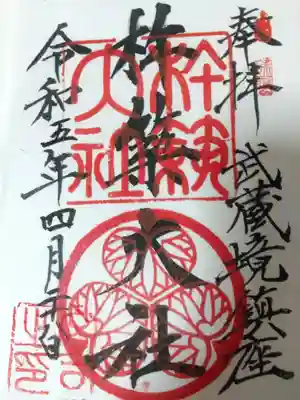 奉拝 武蔵境鎮座
杵築大社
杵築
大社
令和五年四月